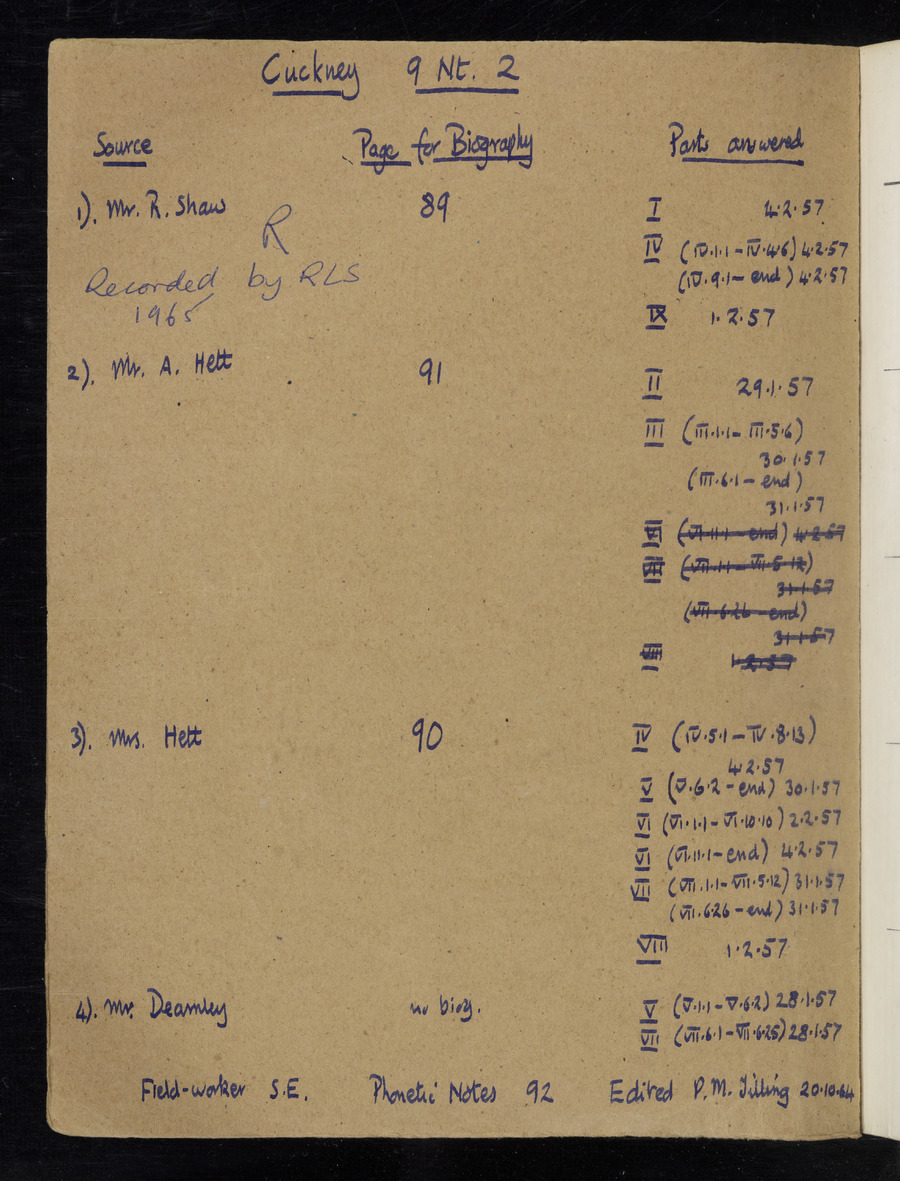 Cuckney 9 Nt. 2
Source Page for Biography Parts answered
1). Mr. R. Shaw 89 I 4.2.57
R
IV (IV.1.1 – IV.4.6) 4.2.57
(IV.9.1 – end) 4.2.57
Recorded by RLS
1965
IX 1.2.57
2). Mr. A. Hett 91 II 29.1.57
III (III.1.1 – III.5.6)
30.1.57
(III.6.1 – end)
31.1.57
VI (VI.11.1 – end) 4.2.57
VII (VII.1.1 – VII.5.12)
31.1.57
(VII.6.26 – end)
31.1.57
VIII 1.2.57
3). Mrs. Hett 90 IV (IV.5.1 – IV.8.13)
4.2.57
V (V.6.2 – end) 30.1.57
VI (VI.1.1 – VI.10.10) 2.2.57
VI (VI.11.1 – end) 4.2.57
VII (VII.1.1 – VII.5.12) 31.1.57
(VII.6.26 – end) 31.1.57
VIII 1.2.57
4). Mr. Dearnley no biog. V (V.1.1 – V.6.2) 28.1.57
VII (VII.6.1 – VII.6.25) 28.1.57
Field-worker S.E. Phonetic Notes 92 Edited P.M. Tilling 20.10.64